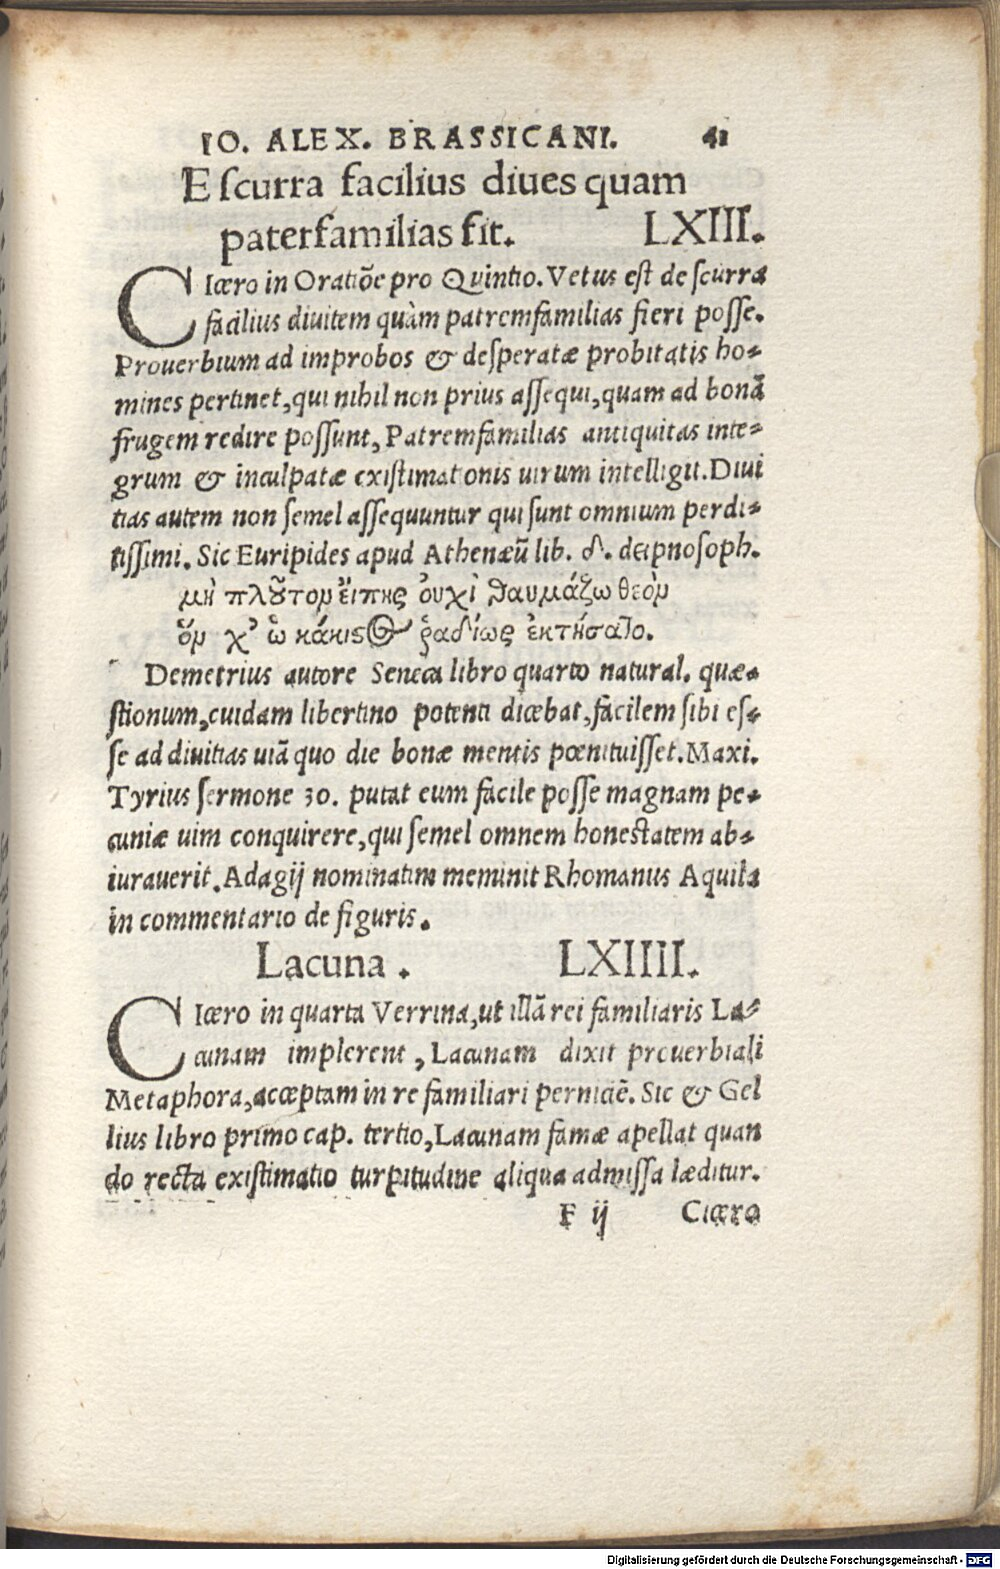 IO. ALEX. BRASSICANI. 41
E scurra facilius diues quam
paterfamilias fit. LXIII.
CIcero in Oratiōe pro Quintio. Vetus est de scurra
facilius diuitem quàm patremfamilias fieri posse.
Prouerbium ad improbos & desperatæ probitatis ho-
mines pertinet, qui nihil non prius assequi, quam ad bonā
frugem redire possunt, Patremfamilias antiquitas inte-
grum & inculpatæ existimationis uirum intelligit. Diui
tias autem non semel assequuntur qui sunt omnium perdi-
tissimi. Sic Euripides apud Athenæū lib. δ. deipnosoph.
μὴ πλοῦτον εἴπῃς οὐχὶ θαυμάζω θεὸν
ὃν χ' ὦ κάκιστος ῥαδίως ἐκτήσατο.
Demetrius autore Seneca libro quarto natural. quæ-
stionum, cuidam libertino potenti dicebat, facilem sibi es-
se ad diuitias uiā quo die bonæ mentis pœnituisset. Maxi.
Tyrius sermone 30. putat eum facile posse magnam pe-
cuniæ uim conquirere, qui semel omnem honestatem ab-
iurauerit. Adagij nominatim meminit Rhomanus Aquila
in commentario de figuris.
Lacuna. LXIIII.
CIcero in quarta Verrina, ut illā rei familiaris La-
cunam implerent, Lacunam dixit prouerbiali
Metaphora, acceptam in re familiari perniciē. Sic & Gel
lius libro primo cap. tertio, Lacunam famæ apellat quan
do recta existimatio turpitudine aliqua admissa læditur.
F ij Cicero
Digitalisierung gefördert durch die Deutsche Forschungsgemeinschaft - DFG